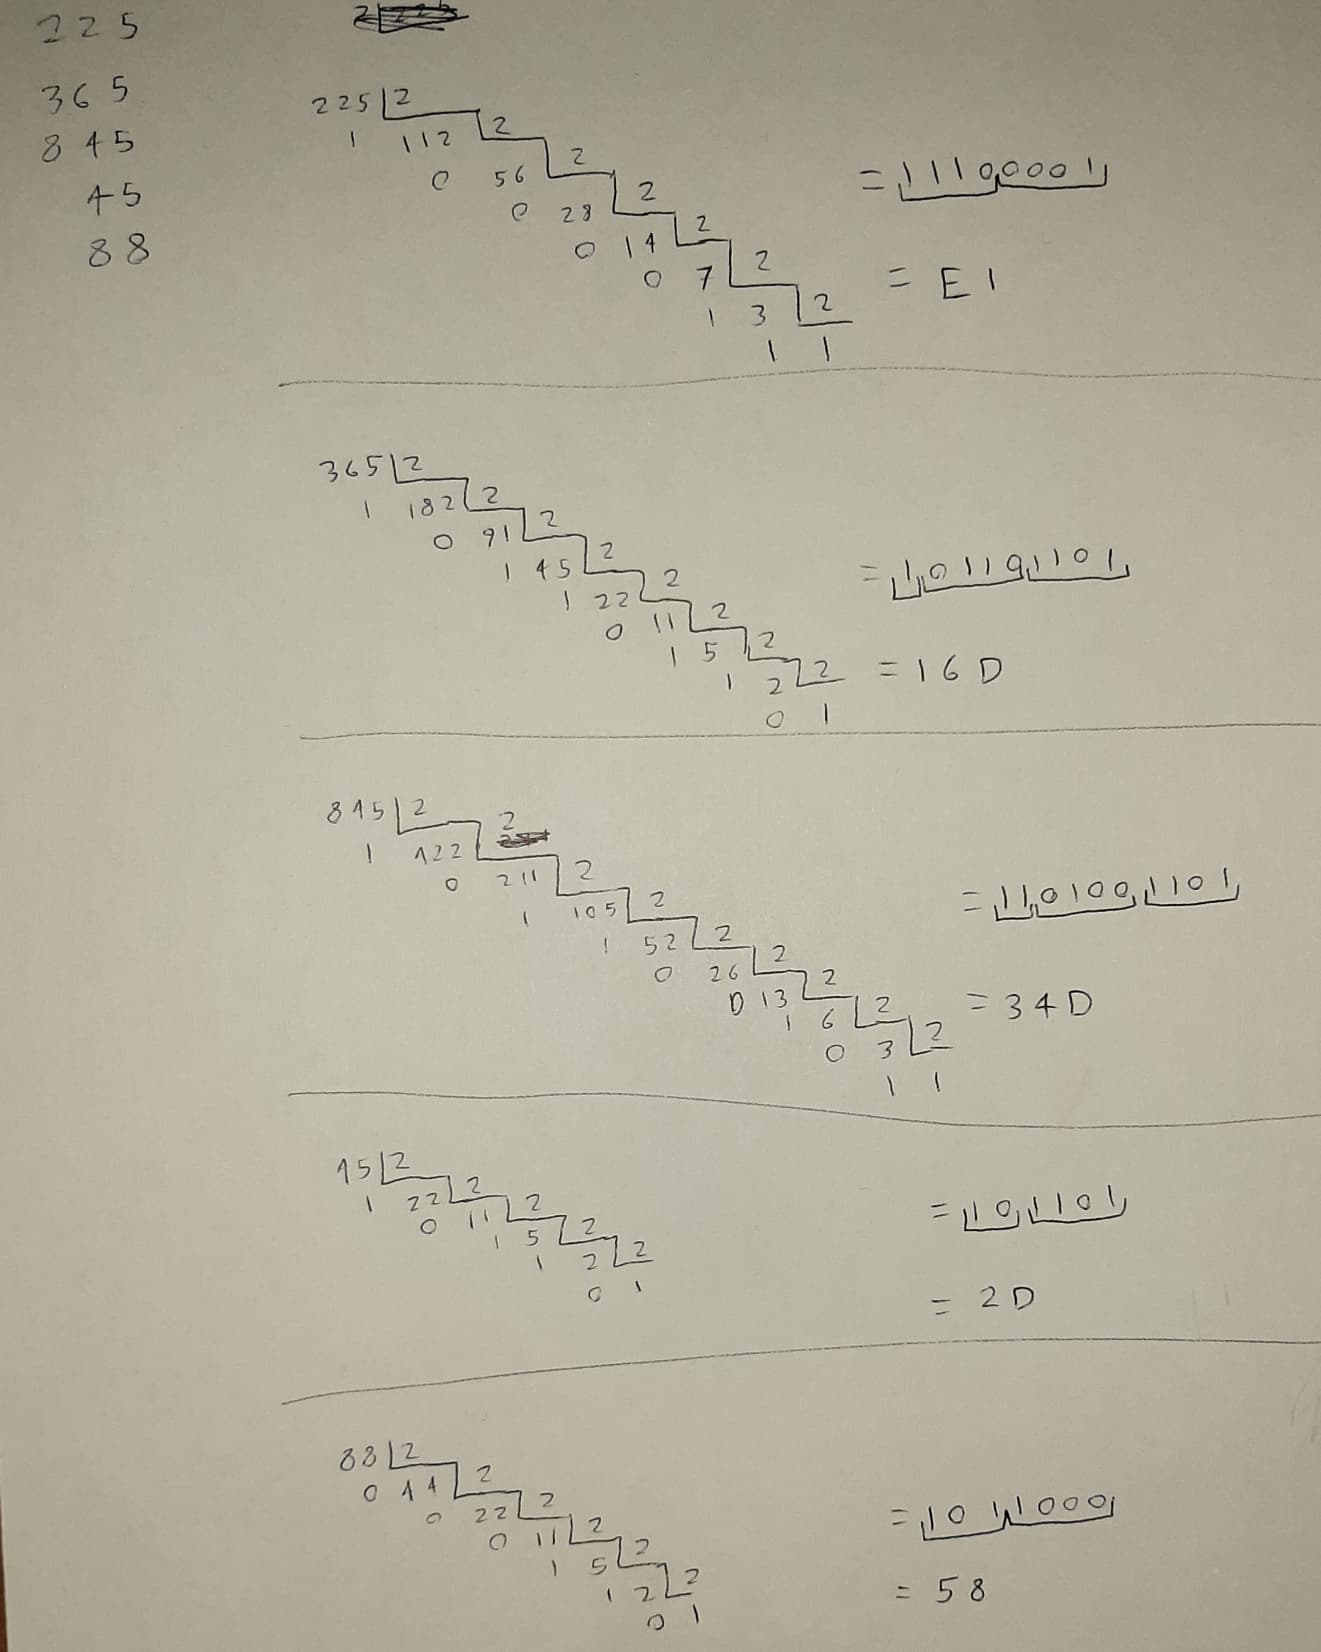 225
365
845
45
88
225 2
1 112 2
0 56 2
0 28 2
0 14 2
0 7 2
1 3 2
1 1
= 11100001
= E1
365 2
1 182 2
0 91 2
1 45 2
1 22 2
0 11 2
1 5 2
1 2 2
0 1
= 101101101
= 16D
845 2
1 422 2
0 211 2
1 105 2
1 52 2
0 26 2
0 13 2
1 6 2
0 3 2
1 1
= 1101001101
= 34D
45 2
1 22 2
0 11 2
1 5 2
1 2 2
0 1
= 101101
= 2D
88 2
0 44 2
0 22 2
0 11 2
1 5 2
1 2 2
0 1
= 1011000
= 58